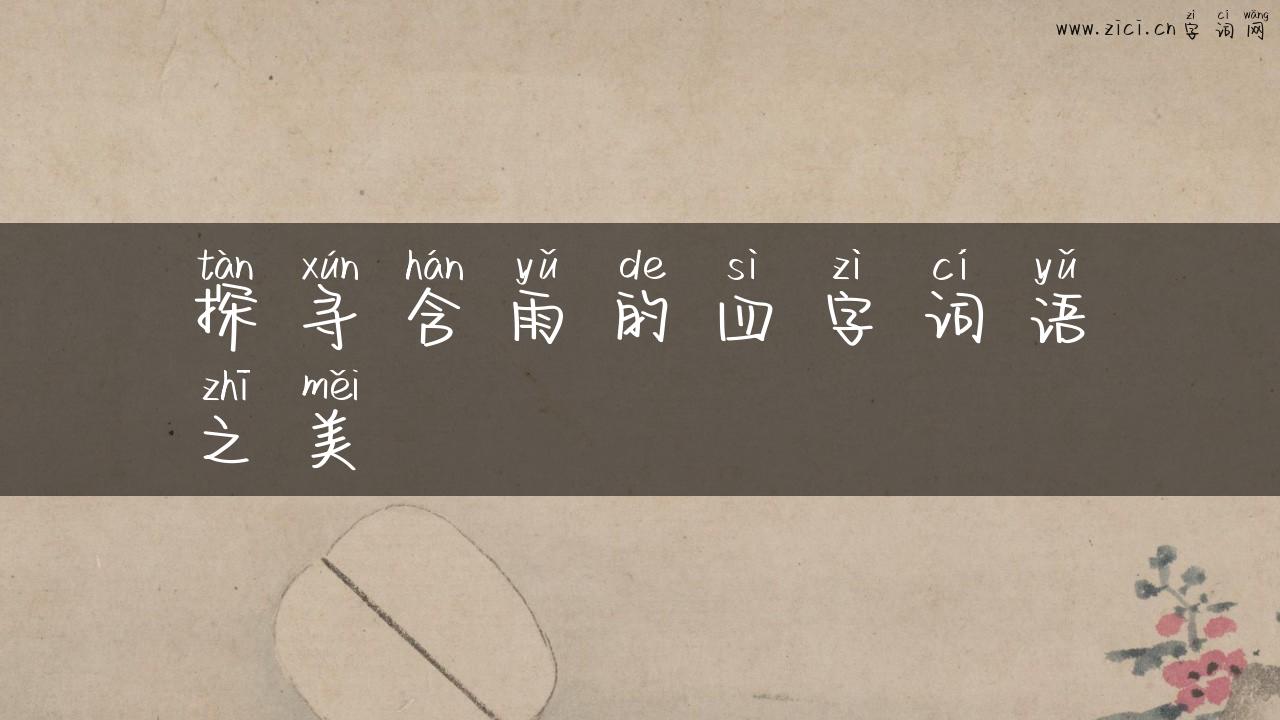 zì cí wǎng
www.zici.cn字词网
tàn xún hán yǔ de sì zì cí yǔ
探寻含雨的四字词语
zhī měi
之美